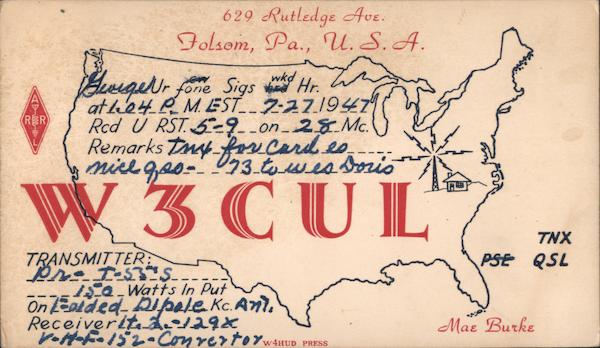 629 Rutledge Ave.
Folsom, Pa., U. S. A.
George Ur fone Sigs wkd Hr.
at 1.04 P. M EST 7-27 1947
Rcd U RST. 5-9 on 28 Mc.
Remarks Tnx for Card es
nice qso- 73 to u es Doris
A
R R
L
W3CUL
TNX
PSE QSL
TRANSMITTER:
Pr- T-55's
150 Watts In Put
On Folded Dipole Kc. Ant.
Receiver H.Q.-129X
V-H-F-152-Convertor
Mae Burke
W4HUD PRESS